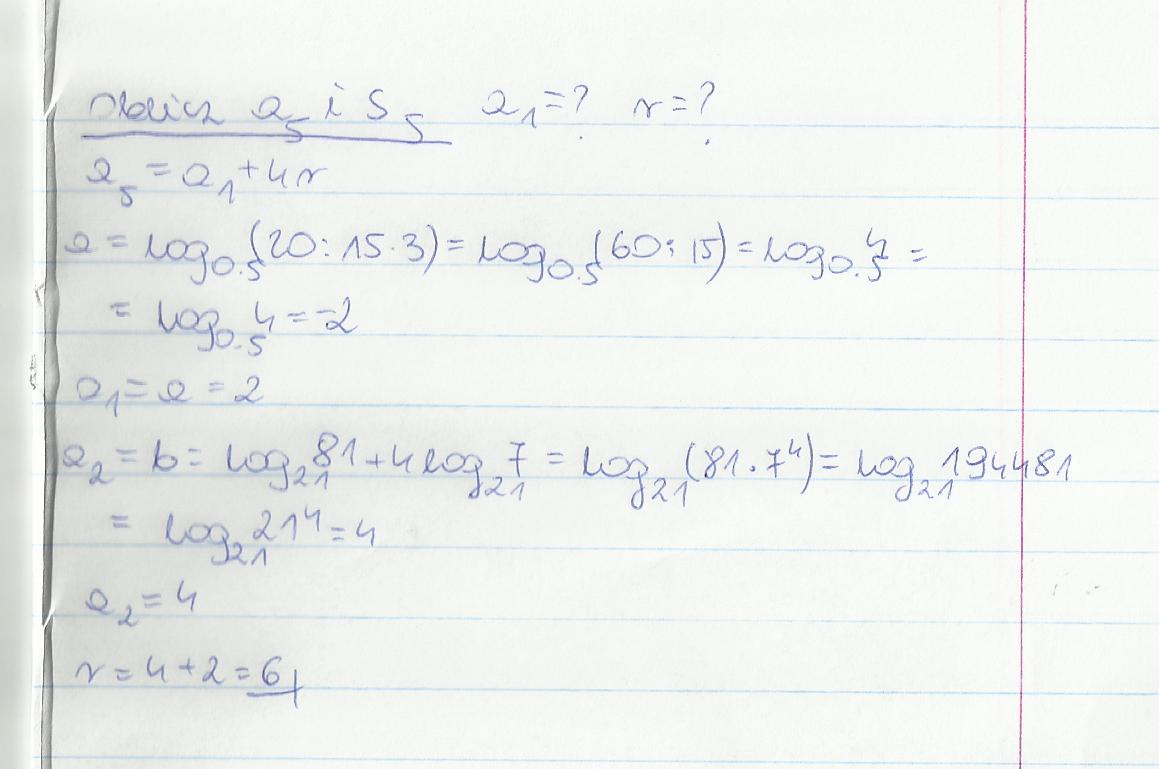 Oblicz a₅ i S₅ a₁=? r=?
a₅ = a₁+4r
a = log₀.₅(20:15·3) = log₀.₅(60:15) = log₀.₅4 =
= log₀.₅4 = -2
a₁ = a = 2
a₂ = b = log₂₁81+4log₂₁7 = log₂₁(81·7⁴) = log₂₁194481
= log₂₁21⁴ = 4
a₂ = 4
r = 4+2 = 6